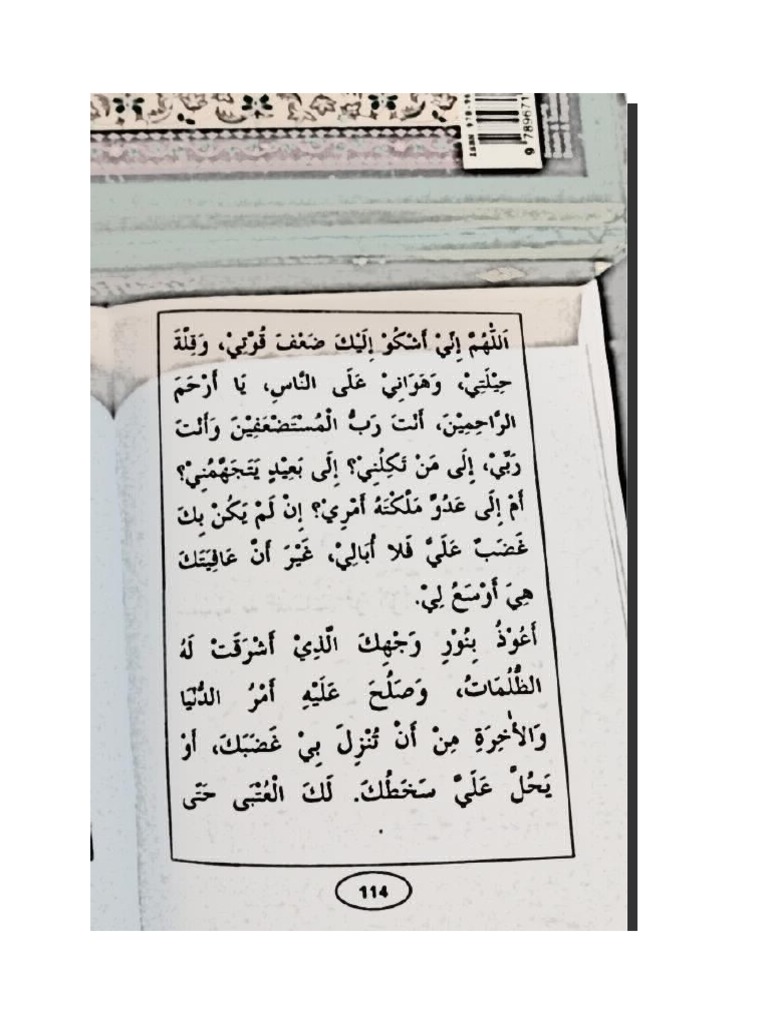 ISBN 978-96
9 789671
اَللّٰهُمَّ إِنِّيْ أَشْكُوْ إِلَيْكَ ضَعْفَ قُوَّتِيْ، وَقِلَّةَ
حِيْلَتِيْ، وَهَوَانِيْ عَلَى النَّاسِ، يَا أَرْحَمَ
الرَّاحِمِيْنَ، أَنْتَ رَبُّ الْمُسْتَضْعَفِيْنَ وَأَنْتَ
رَبِّيْ، إِلَى مَنْ تَكِلُنِيْ؟ إِلَى بَعِيْدٍ يَتَجَهَّمُنِيْ؟
أَمْ إِلَى عَدُوٍّ مَلَّكْتَهُ أَمْرِيْ؟ إِنْ لَمْ يَكُنْ بِكَ
غَضَبٌ عَلَيَّ فَلا أُبَالِيْ، غَيْرَ أَنَّ عَافِيَتَكَ
هِيَ أَوْسَعُ لِيْ.
أَعُوْذُ بِنُوْرِ وَجْهِكَ الَّذِيْ أَشْرَقَتْ لَهُ
الظُّلُمَاتُ، وَصَلُحَ عَلَيْهِ أَمْرُ الدُّنْيَا
وَالْأٰخِرَةِ مِنْ أَنْ تُنْزِلَ بِيْ غَضَبَكَ، أَوْ
يَحُلَّ عَلَيَّ سَخَطُكَ. لَكَ الْعُتْبَى حَتَّى
114